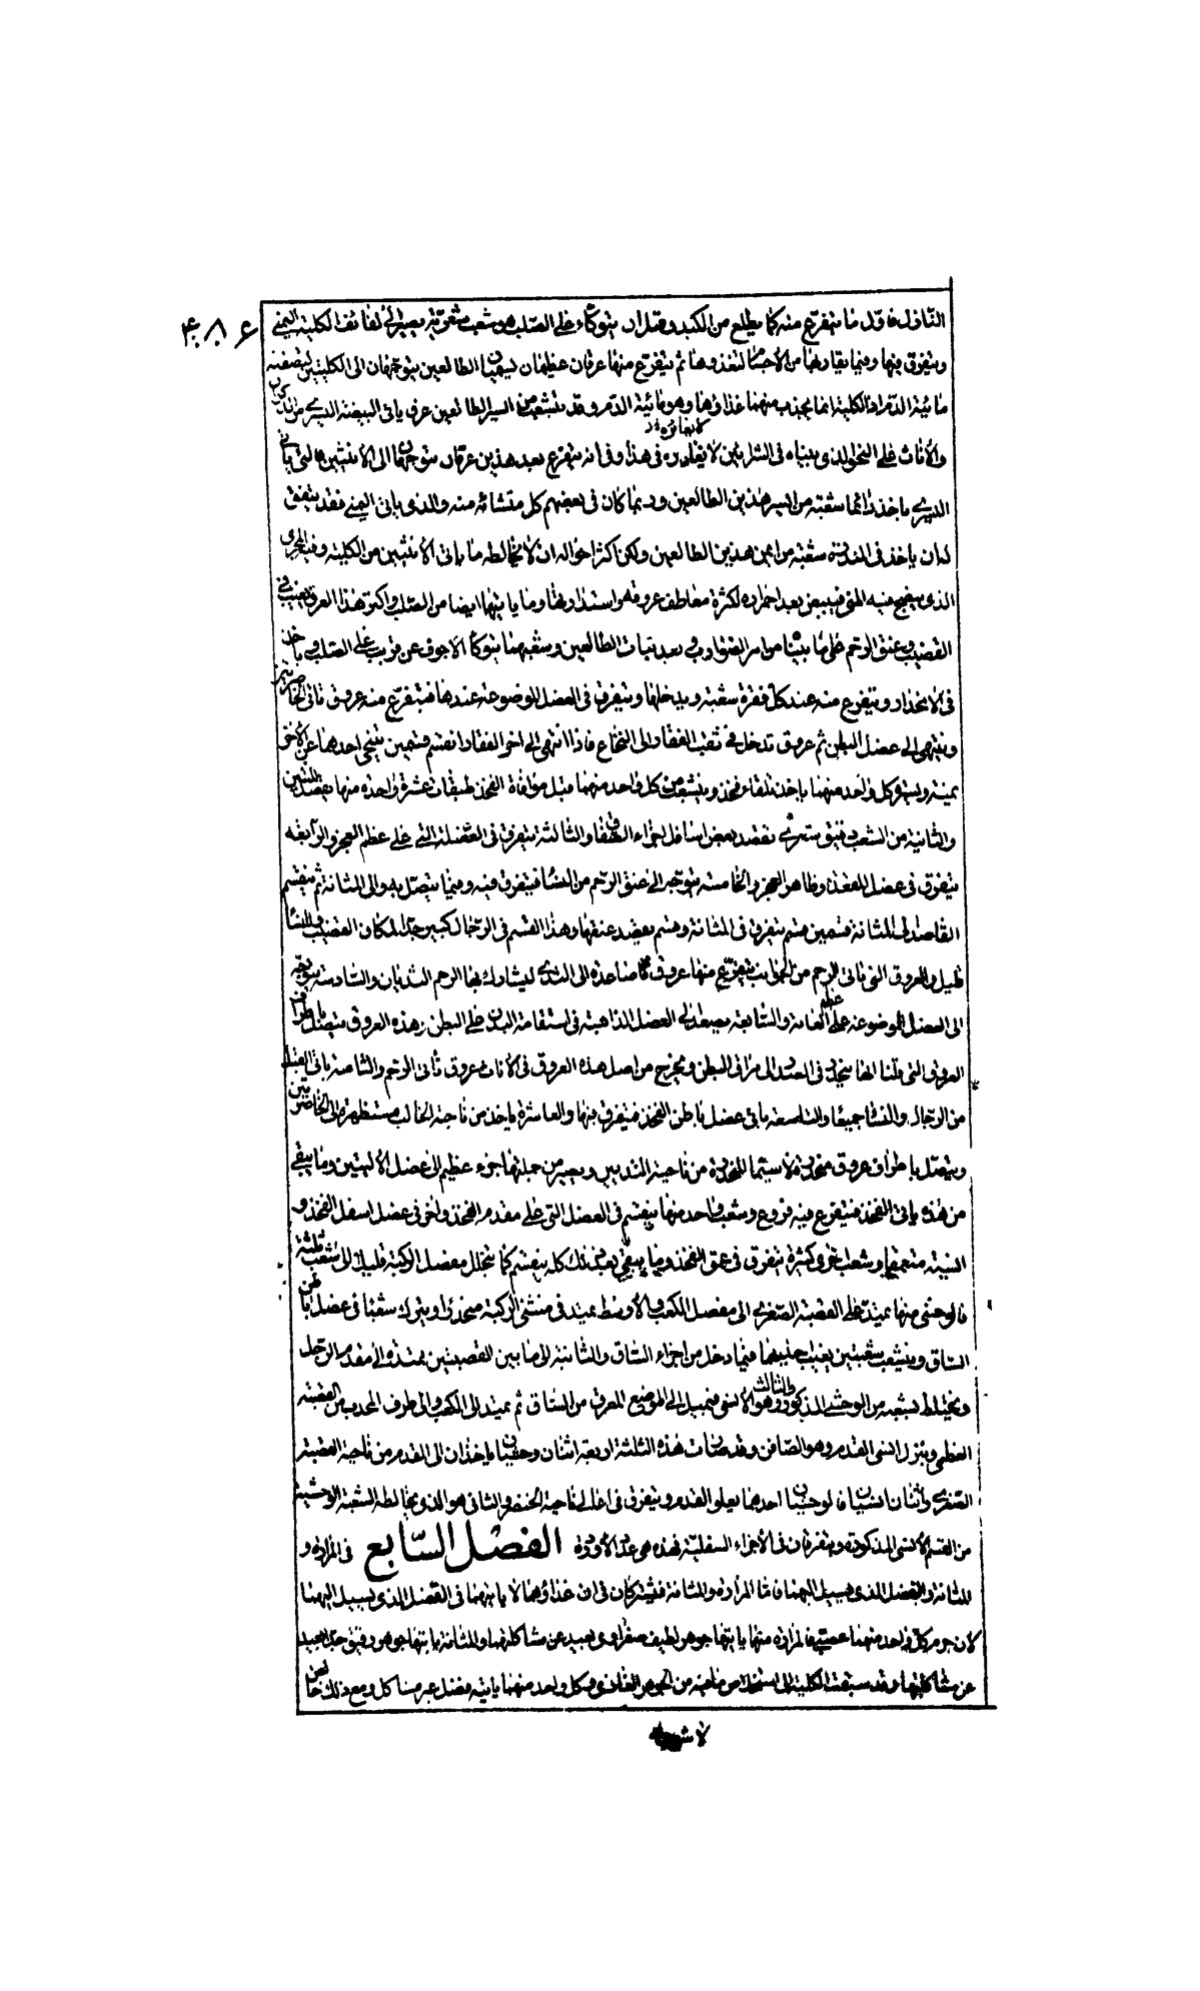 ۴۸۶
النازل فاول ما يتفرع منه كما يطلع من الكبد وقبل ان يتوكأ على الصلب هو شعب شعرية يصير الى لفائف الكلية اليمنى
ويتفرق فيها وفيما يقاربها من الاجسام لتغذوها ثم يتفرع منها عرقان عظيمان يسميان الطالعين يتوجهان الى الكليتين لتصفية
مائية الدم اذ الكلية انما يجذب منهما غذاؤها وهو مائية الدم وقد يتشعب من ايسر الطالعين عرق ياتى البيضة اليسرى من الذكران
والاناث على النحو الذى بيناه فى الشرايين لا يغادره فى هذا وفى انه يتفرع بعد هذين عرقان متوجهان الى الانثيين فالتى ياتى
اليسرى ياخذ دائما شعبة من ايسر هذين الطالعين وربما كان فى بعضهم كل منشائه منه والذى ياتى اليمنى فقد يتفق
له ان ياخذ فى الندرة شعبة من ايمن هذين الطالعين ولكن اكثر احواله ان لا يخالطه ما ياتى الانثيين من الكلية وفيه المجرى
الذى ينضج فيه المنى فيبيض بعد احمراره لكثرة معاطف عروقه واستدارتها وما ياتيها ايضا من الصلب واكثر هذا العرق يغيب فى
القضيب وعنق الرحم على ما بينا من امر الضوارب وبعد نبات الطالعين وشعبهما يتوكأ الاجوف عن قريب على الصلب وياخذ
فى الانحدار ويتفرع منه عند كل فقرة شعبة ويدخلها ويتفرق فى العضل الموضوعة عندها فيتفرع منه عروق تاتى الخاصرتين
وينتهى الى عضل البطن ثم عروق تدخل فى ثقب الفقار الى النخاع فاذا انتهى الى اخر الفقار انقسم قسمين يتنحى احدهما عن الاخر
يمنة ويسرة كل واحد منهما ياخذ تلقاء فخذ ويتشعب من كل واحد منهما قبل موافاة الفخذ طبقات عشرة واحدة منها يقصد المتنين
والثانية من الشعب دقيق شعرى يقصد بعض اسافل اجزاء الصفاق والثالثة يتفرق فى العضلة التى على عظم العجز والرابعة
يتفرق فى عضل المقعدة وظاهر العجز والخامسة يتوجه الى عنق الرحم من النساء فيتفرق فيه وفيما يتصل به والى المثانة ثم ينقسم
القاصد الى المثانة قسمين قسم يتفرق فى المثانة وقسم يقصد عنقها وهذا القسم فى الرجال كبير جدا لمكان القضيب وللنساء
قليل والعروق التى تاتى الرحم من الجوانب يتفرع منها عروق صاعدة الى الثدى ليشارك بها الرحم الثديان والسادسة يتوجه
الى العضل الموضوعة على عظم العانة والسابعة يصعد الى العضل الذاهبة فى استقامة البدن على البطن وهذه العروق يتصل باطراف
العروق التى قلنا انها ينحدر فى الصدر الى مراق البطن ويخرج من اصل هذه العروق فى الاناث عروق تاتى الرحم والثامنة ياتى القبل
من الرجال والنساء جميعا والتاسعة ياتى عضل باطن الفخذ فيتفرق فيها والعاشرة ياخذ من ناحية الحالب مستظهرة الى الخاصرتين
ويتصل باطراف عروق منحدرة لا سيما المنحدرة من ناحية الثديين ويصير من جملتها جزء عظيم الى عضل الاليتين وما يبقى
من هذه ياتى الفخذ فيتفرع فيه فروع وشعب واحد منها ينقسم فى العضل التى على مقدم الفخذ واخر فى عضل اسفل الفخذ و
انسيه متعمقا وشعب اخرى كثيرة يتفرق فى عمق الفخذ وما يبقى بعد ذلك كله ينقسم كما يتحلل مفصل الركبة قليلا الى شعب ثلثة
فالوحشى منها يمتد على القصبة الصغرى الى مفصل الكعب والاوسط يمتد فى منثنى الركبة منحدرا ويترك شعبا فى عضل باطن
الساق ويتشعب شعبتين يغيب احديهما فيما دخل من اجزاء الساق والثانية الى ما بين القصبتين ممتدة الى مقدم الرجل
ويختلط بشعبة من الوحشى المذكور والثالث وهو الانسى فيميل الى الموضع المعرق من الساق ثم يمتد الى الكعب والى طرف المحدب من القصبة
العظمى وينزل الى انسى القدم وهو الصافن وقد صارت هذه الثلثة اربعة اثنان وحشيان ياخذان الى القدم من ناحية القصبة
الصغرى واثنان انسيان فالوحشيان احدهما يعلو القدم ويتفرق فى اعالى ناحية الخنصر والثانى هو الذى يخالطه الشعبة الوحشية
من القسم الانسى المذكورة ويتفرقان فى الاجزاء السفلية فهذه هى عدد الاوردة الفصل السابع فى المرارة و
المثانة والفضل الذى يسيل اليهما فاما المرارة والمثانة فيشتركان فى ان غذاؤهما لا ياتيهما فى الفضل الذى يسيل اليهما
لان جوهر كل واحد منهما عصبى فالمرارة منهما ياتيها جوهر لطيف صفراوى بعيد عن مشاكلتها والمثانة ياتيها جوهر رقيق جدا بعيد
عن مشاكلتها وقد سبقت الكلية الى استخلاص ما فيه من الجوهر الغاذى وكل واحد منهما ياتيه فضل غير مشاكل ومع ذلك خالص
لا شوب